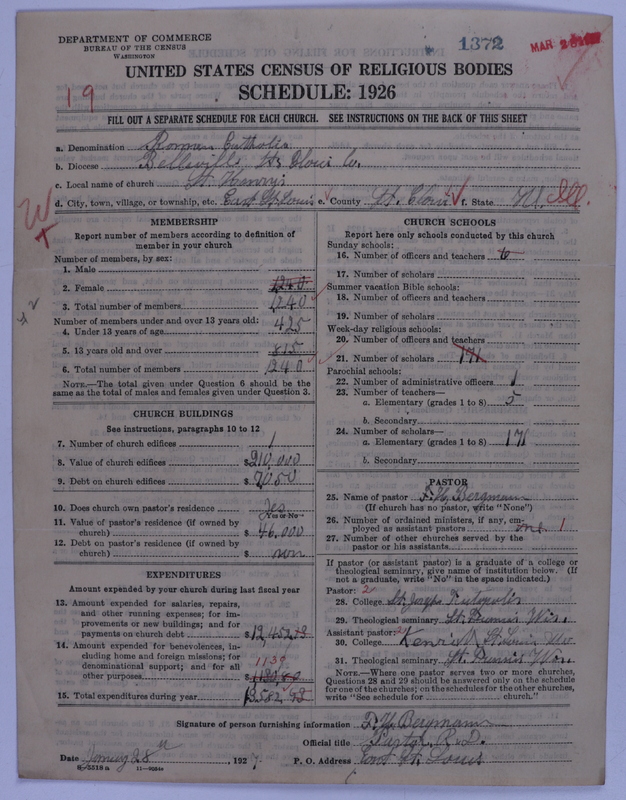 DEPARTMENT OF COMMERCE
BUREAU OF THE CENSUS
WASHINGTON
1372
MAR
UNITED STATES CENSUS OF RELIGIOUS BODIES
SCHEDULE: 1926
19
FILL OUT A SEPARATE SCHEDULE FOR EACH CHURCH. SEE INSTRUCTIONS ON THE BACK OF THIS SHEET
a. Denomination Roman Catholic
b. Diocese Belleville St. Clair Co.
c. Local name of church St. Henry's
d. City, town, village, or township, etc. East St. Louis e. County St. Clair f. State Ill.
MEMBERSHIP
Report number of members according to definition of
member in your church
Number of members, by sex:
1. Male
2. Female 1240
3. Total number of members 1240
Number of members under and over 13 years old:
4. Under 13 years of age 425
5. 13 years old and over 815
6. Total number of members 1240
NOTE.—The total given under Question 6 should be the
same as the total of males and females given under Question 3.
CHURCH BUILDINGS
See instructions, paragraphs 10 to 12
7. Number of church edifices 1
8. Value of church edifices $ 210,000
9. Debt on church edifices $ 7050
10. Does church own pastor's residence Yes
Yes or No
11. Value of pastor's residence (if owned by
church) $ 46,000
12. Debt on pastor's residence (if owned by
church) $ non
EXPENDITURES
Amount expended by your church during last fiscal year
13. Amount expended for salaries, repairs,
and other running expenses; for im-
provements or new buildings; and for
payments on church debt $ 12,452.13
14. Amount expended for benevolences, in-
cluding home and foreign missions; for
denominational support; and for all
other purposes $ 1130.80
1130
15. Total expenditures during year 13,582.93
CHURCH SCHOOLS
Report here only schools conducted by this church
Sunday schools:
16. Number of officers and teachers 6
17. Number of scholars
Summer vacation Bible schools:
18. Number of officers and teachers
19. Number of scholars
Week-day religious schools:
20. Number of officers and teachers
21. Number of scholars 171
Parochial schools:
22. Number of administrative officers 1
23. Number of teachers—
a. Elementary (grades 1 to 8) 5
b. Secondary
24. Number of scholars—
a. Elementary (grades 1 to 8) 171
b. Secondary
PASTOR
25. Name of pastor F. H. Bergmann
(If church has no pastor, write "None")
26. Number of ordained ministers, if any, em-
ployed as assistant pastors one 1
27. Number of other churches served by the
pastor or his assistants
If pastor (or assistant pastor) is a graduate of a college or
theological seminary, give name of institution below. (If
not a graduate, write "No" in the space indicated.)
Pastor: 2
28. College St. Joseph Teutopolis
29. Theological seminary St. Francis Wis.
Assistant pastor: 2
30. College Kenrick St. Louis Mo
31. Theological seminary St. Francis Wis.
NOTE.—Where one pastor serves two or more churches,
Questions 28 and 29 should be answered only on the schedule
for one of the churches; on the schedules for the other churches,
write "See schedule for church."
Signature of person furnishing information F. H. Bergmann
Official title Pastor
Date January 28th, 1927. P. O. Address East St. Louis
8-5518 a 11-9024